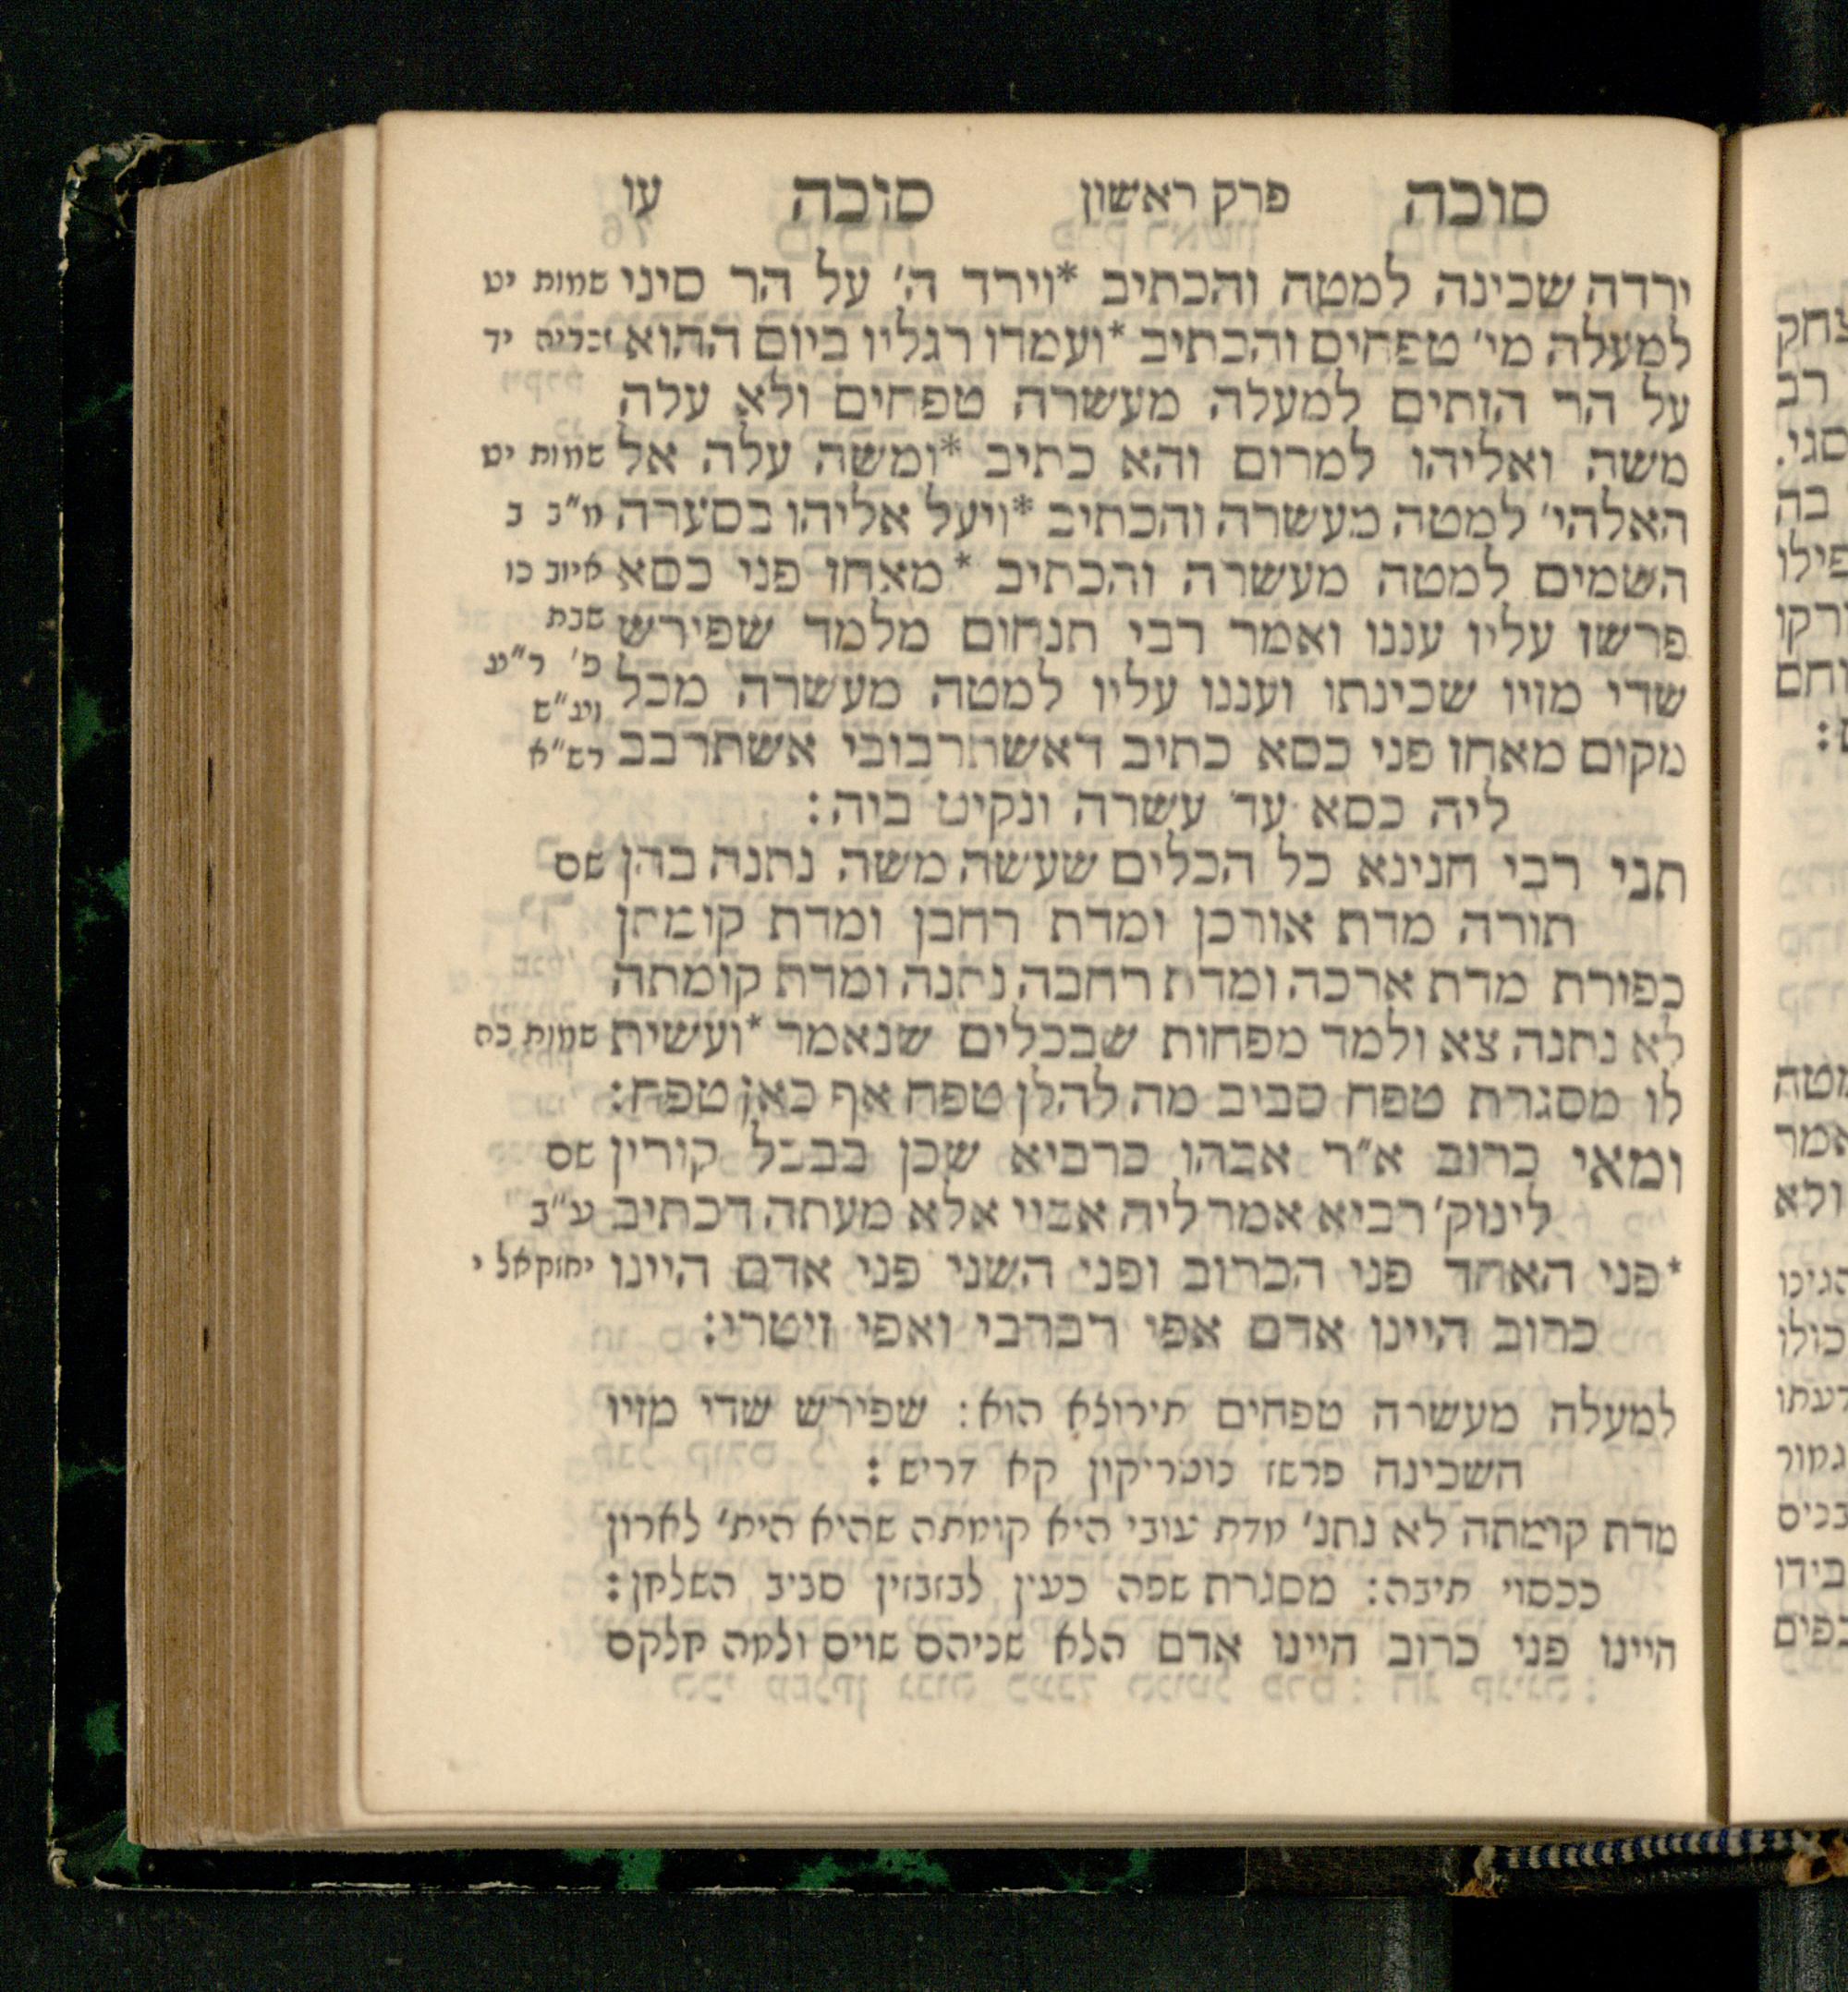 סוכה פרק ראשון סוכה עו
ירדה שכינה למטה והכתיב *וירד ה' על הר סיני שמות יט
למעלה מי' טפחים והכתיב *ועמדו רגליו ביום ההוא זכריה יד
על הר הזתים למעלה מעשרה טפחים ולא עלה
משה ואליהו למרום והא כתיב *ומשה עלה אל שמות יט
האלהי' למטה מעשרה והכתיב *ויעל אליהו בסערה מ"ב ב
השמים למטה מעשרה והכתיב *מאחז פני כסא איוב כו
פרשז עליו עננו ואמר רבי תנחום מלמד שפירש שבת
שדי מזיו שכינתו ועננו עליו למטה מעשרה מכל פ' ר"ע
מקום מאחז פני כסא כתיב דאשתרבובי אשתרבב ויע"ש רש"א
ליה כסא עד עשרה ונקיט ביה:
תני רבי חנינא כל הכלים שעשה משה נתנה בהן שם
תורה מדת אורכן ומדת רחבן ומדת קומתן
כפורת מדת ארכה ומדת רחבה נתנה ומדת קומתה
לא נתנה צא ולמד מפחות שבכלים שנאמר *ועשית שמות כה
לו מסגרת טפח סביב מה להלן טפח אף כאן טפח:
ומאי כרוב א"ר אבהו כרביא שכן בבבל קורין שם
לינוק' רביא אמר ליה אביי אלא מעתה דכתיב ע"ב
*פני האחד פני הכרוב ופני השני פני אדם היינו יחזקאל י
כרוב היינו אדם אפי רברבי ואפי זוטרי:
למעלה מעשרה טפחים תירוצא הוא: שפירש שדי מזיו
השכינה פרשז נוטריקון קא דריש:
מדת קומתה לא נתנ' מדת עובי היא קומתה שהיא הית' לארון
ככסוי תיבה: מסגרת שפה כעין לבזבזין סביב השלחן:
היינו פני כרוב היינו אדם הלא שניהם שוים ולמה חלקם